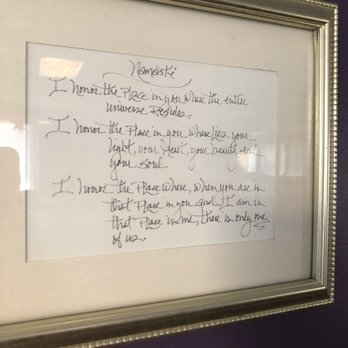 Namaste
I honor the Place in you where the entire
universe Resides.
I honor the Place in you where lies your
light, your heart, your beauty and
your soul.
I honor the Place where, when you are in
that Place in you and I am in
that Place in me, there is only one
of us.